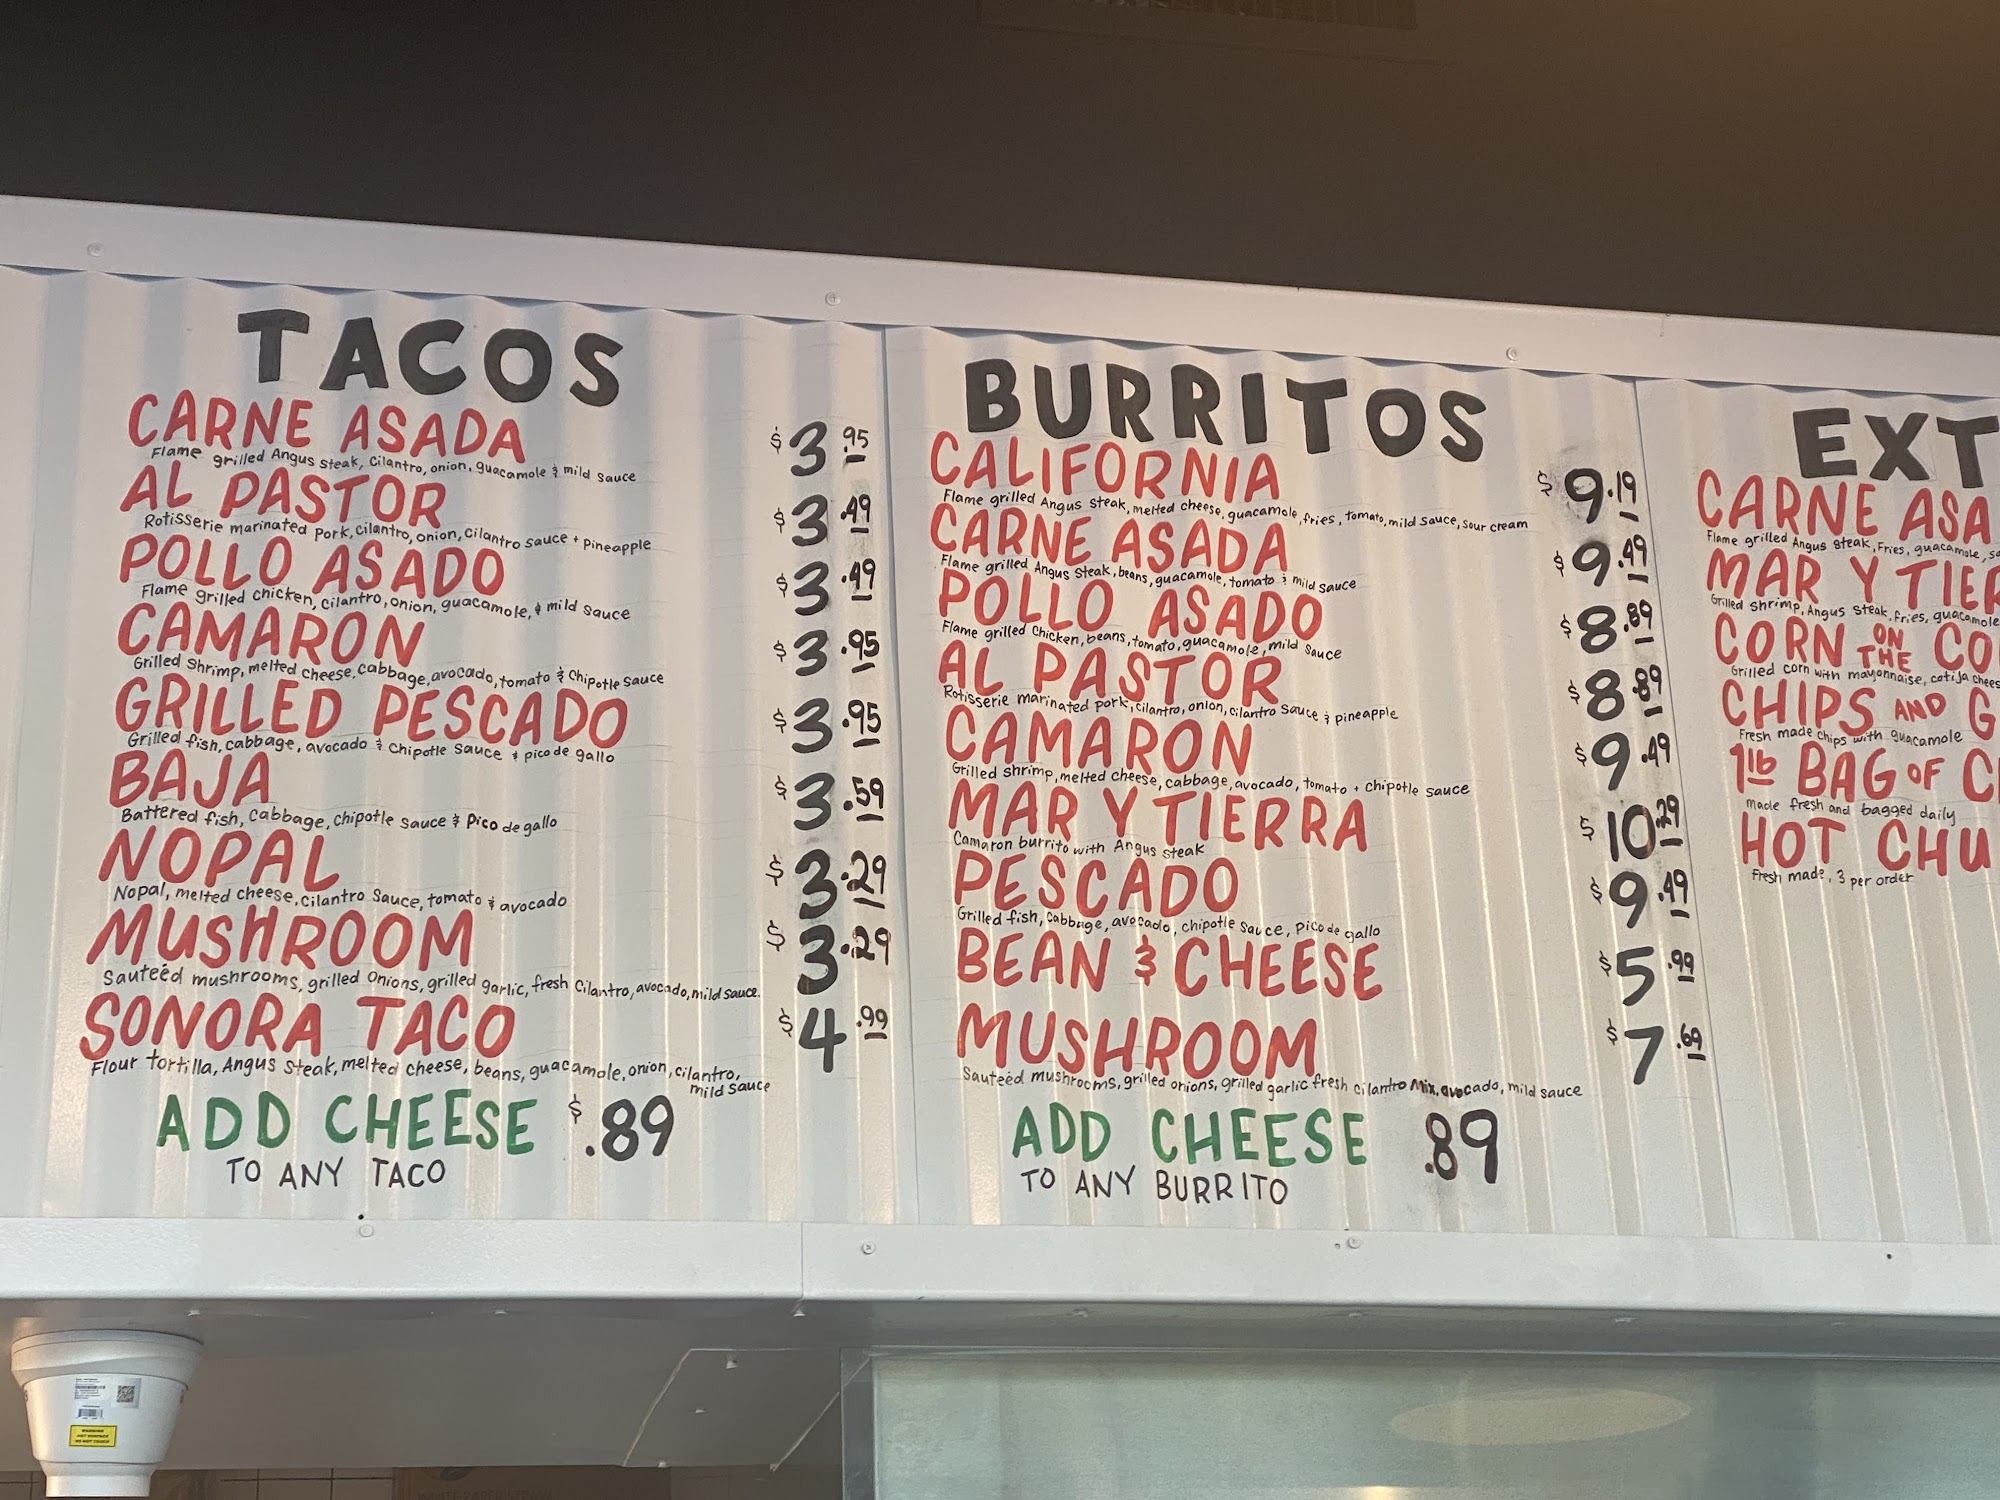 TACOS
CARNE ASADA $3.95
Flame grilled Angus steak, cilantro, onion, guacamole & mild sauce
AL PASTOR $3.49
Rotisserie marinated pork, cilantro, onion, cilantro sauce + pineapple
POLLO ASADO $3.49
Flame grilled chicken, cilantro, onion, guacamole, & mild sauce
CAMARON $3.95
Grilled shrimp, melted cheese, cabbage, avocado, tomato & chipotle sauce
GRILLED PESCADO $3.95
Grilled fish, cabbage, avocado & chipotle sauce & pico de gallo
BAJA $3.59
Battered fish, cabbage, chipotle sauce & Pico de gallo
NOPAL $3.29
Nopal, melted cheese, cilantro sauce, tomato & avocado
MUSHROOM $3.29
Sauteéd mushrooms, grilled onions, grilled garlic, fresh cilantro, avocado, mild sauce.
SONORA TACO $4.99
Flour tortilla, Angus steak, melted cheese, beans, guacamole, onion, cilantro,
mild sauce
ADD CHEESE $.89
TO ANY TACO
BURRITOS
CALIFORNIA $9.19
Flame grilled Angus steak, melted cheese, guacamole, fries, tomato, mild sauce, sour cream
CARNE ASADA $9.49
Flame grilled Angus steak, beans, guacamole, tomato & mild sauce
POLLO ASADO $8.89
Flame grilled chicken, beans, tomato, guacamole, mild sauce
AL PASTOR $8.89
Rotisserie marinated pork, cilantro, onion, cilantro sauce & pineapple
CAMARON $9.49
Grilled shrimp, melted cheese, cabbage, avocado, tomato + chipotle sauce
MAR Y TIERRA $10.29
Camaron burrito with Angus steak
PESCADO $9.49
Grilled fish, cabbage, avocado, chipotle sauce, pico de gallo
BEAN & CHEESE $5.99
MUSHROOM $7.69
Sauteéd mushrooms, grilled onions, grilled garlic fresh cilantro Mix, avocado, mild sauce
ADD CHEESE .89
TO ANY BURRITO
EXT
CARNE ASA
Flame grilled Angus steak, Fries, guacamole, so
MAR Y TIER
Grilled shrimp, Angus steak, fries, guacamole
CORN ON THE CO
Grilled corn with mayonnaise, cotija chees
CHIPS AND G
Fresh made chips with guacamole
1lb BAG OF C
made fresh and bagged daily
HOT CHU
Fresh made, 3 per order